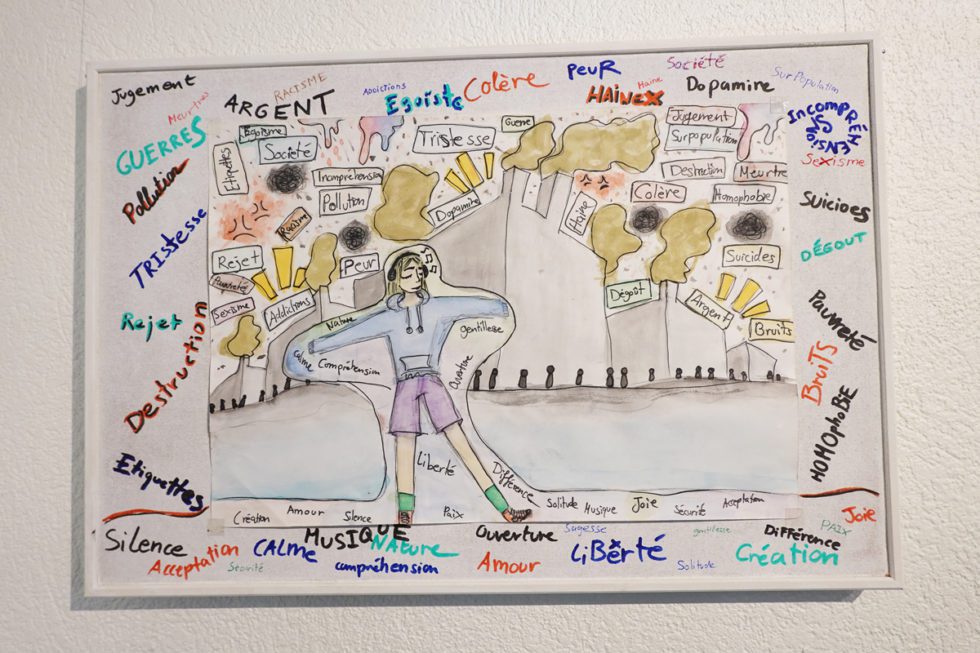 Jugement
Meurtres
RACISME
ARGENT
Addictions
Egoïste
Colère
PEUR
Haine
HAINEX
Société
Dopamine
Surpopulation
INCOMPRÉHENSIONS
Sexisme
GUERRES
Pollution
TRISTESSE
Rejet
Destruction
Etiquettes
SUICIDES
DÉGOUT
Pauvreté
BRUITS
HOMOPHOBIE
Etiquettes
Egoïsme
Société
Incompréhension
Pollution
Racisme
Rejet
Pauvreté
Sexisme
Addictions
Peur
Tristesse
Guerre
Dopamine
Haine
Jugement
Surpopulation
Destruction
Meurtre
Colère
Homophobie
Suicides
Dégoût
Argent
Bruits
Nature
gentillesse
Calme
Compréhension
Ouverture
Liberté
Différence
Création
Amour
Silence
Paix
Solitude
Musique
Joie
Sécurité
Acceptation
Silence
Acceptation
Sécurité
CALME
MUSIQUE
NATURE
compréhension
Ouverture
Amour
Sagesse
LIBERTÉ
gentillesse
Solitude
DIFFÉRENCE
PAIX
Joie
Création